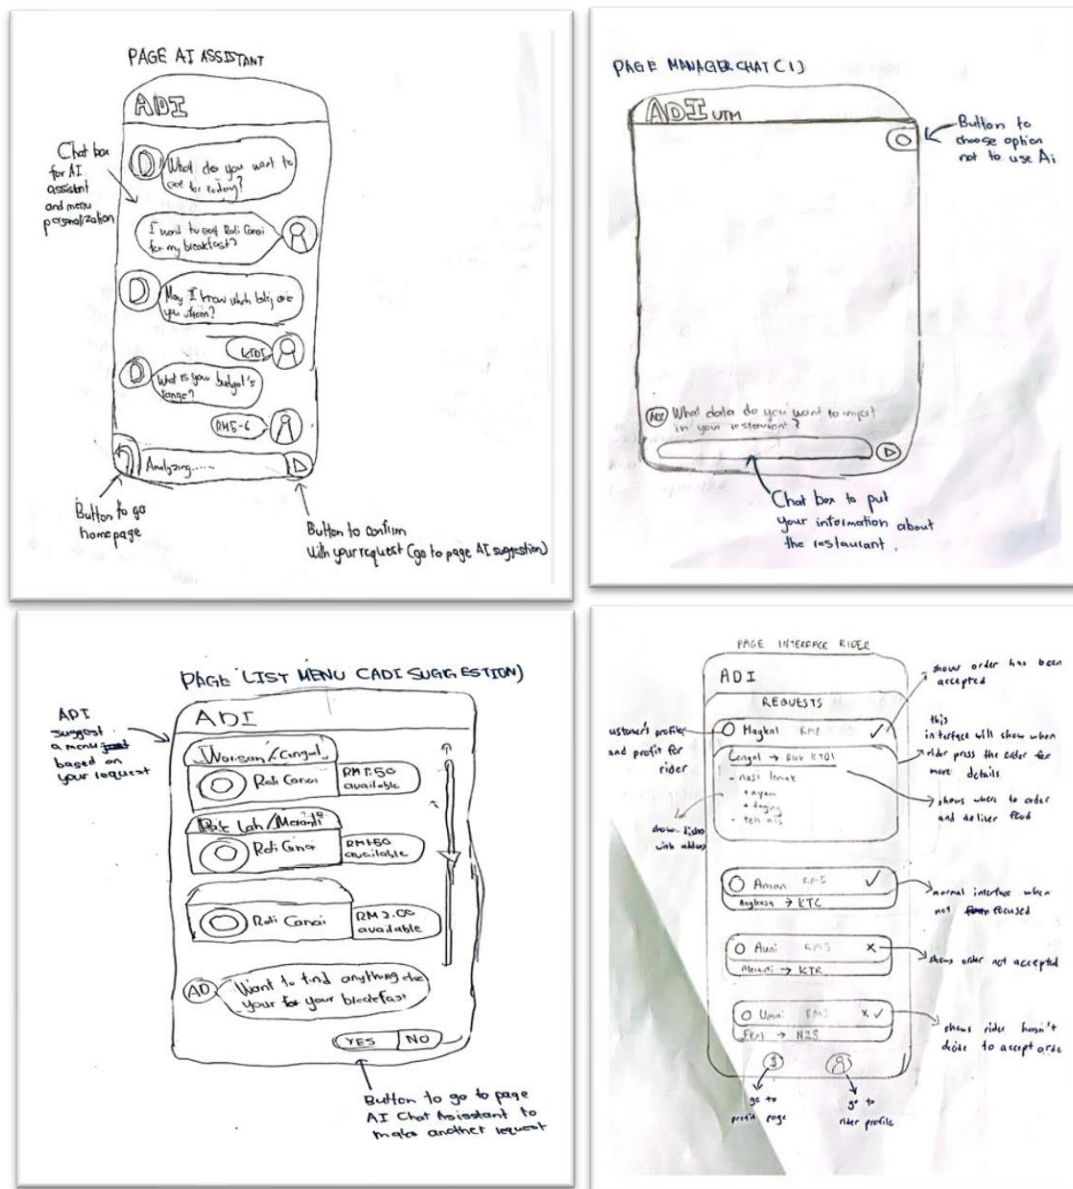 PAGE AI ASSISTANT
ADI
Chat box
for AI
assistant
and menu
personalization
What do you want to
eat for today?
I want to eat Roti Canai
for my breakfast?
May I know which kolej are
you whom?
KTDI
What is your budget's
range?
RM5-6
Analyzing......
Button to go
homepage
Button to confirm
with your request (go to page AI suggestion)
PAGE MANAGER CHAT (1)
ADI UTM
Button to
choose option
not to use Ai
What data do you want to import
in your restaurant?
Chat box to put
your information about
the restaurant.
PAGE LIST MENU (ADI SUGGESTION)
ADI
suggest
a menu
based on
your request
ADI
Warisan/Cengal
Roti Canai
RM1.50
available
Pak Lah/Meranti
Roti Canai
RM1.50
available
Roti Canai
RM2.00
available
AD
Want to find anything else
your for your breakfast
YES NO
Button to go to page
AI Chat Assistant to
makes another request
PAGE INTERFACE RIDER
ADI
REQUESTS
shows order has been
accepted
ustomer's profile
and profit for
rider
Haykal
Cengal → Blok KTDI
- nasi lemak
+ ayam
+ daging
- teh ais
this
interface will show when
rider press the order for
more details
shows where to order
and deliver food
show
with
Aman RM5 ✓
→ KTC
normal interface when
not focused
Auni RM3 x
Meranti → KTR
shows order not accepted
Umai RM5 x ✓
→ N28
shows rider hasn't
decide to accept orde
$
go to
profit page
go to
rider profile